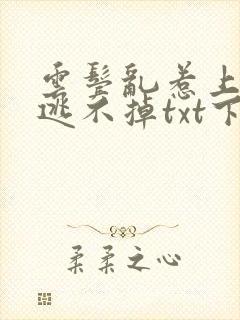 云鬓乱惹上
逃不掉txt下
柔柔之心